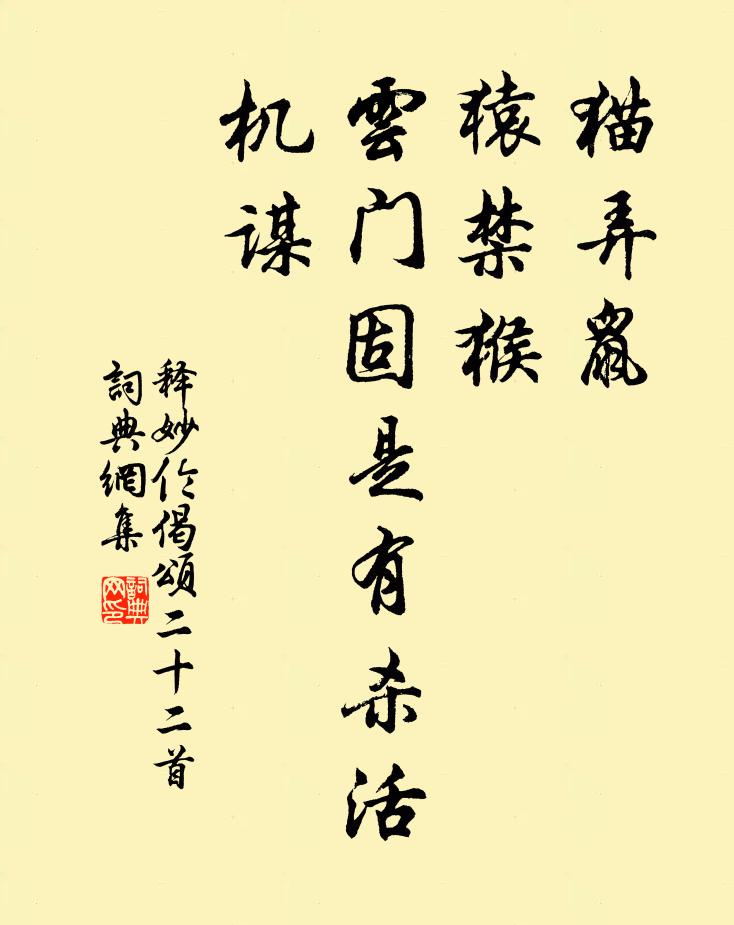 猫弄鼠
猿禁猴
雲门固是有杀活
机谋
释妙伦偈頌二十二首
詞典網集
詞典
网印